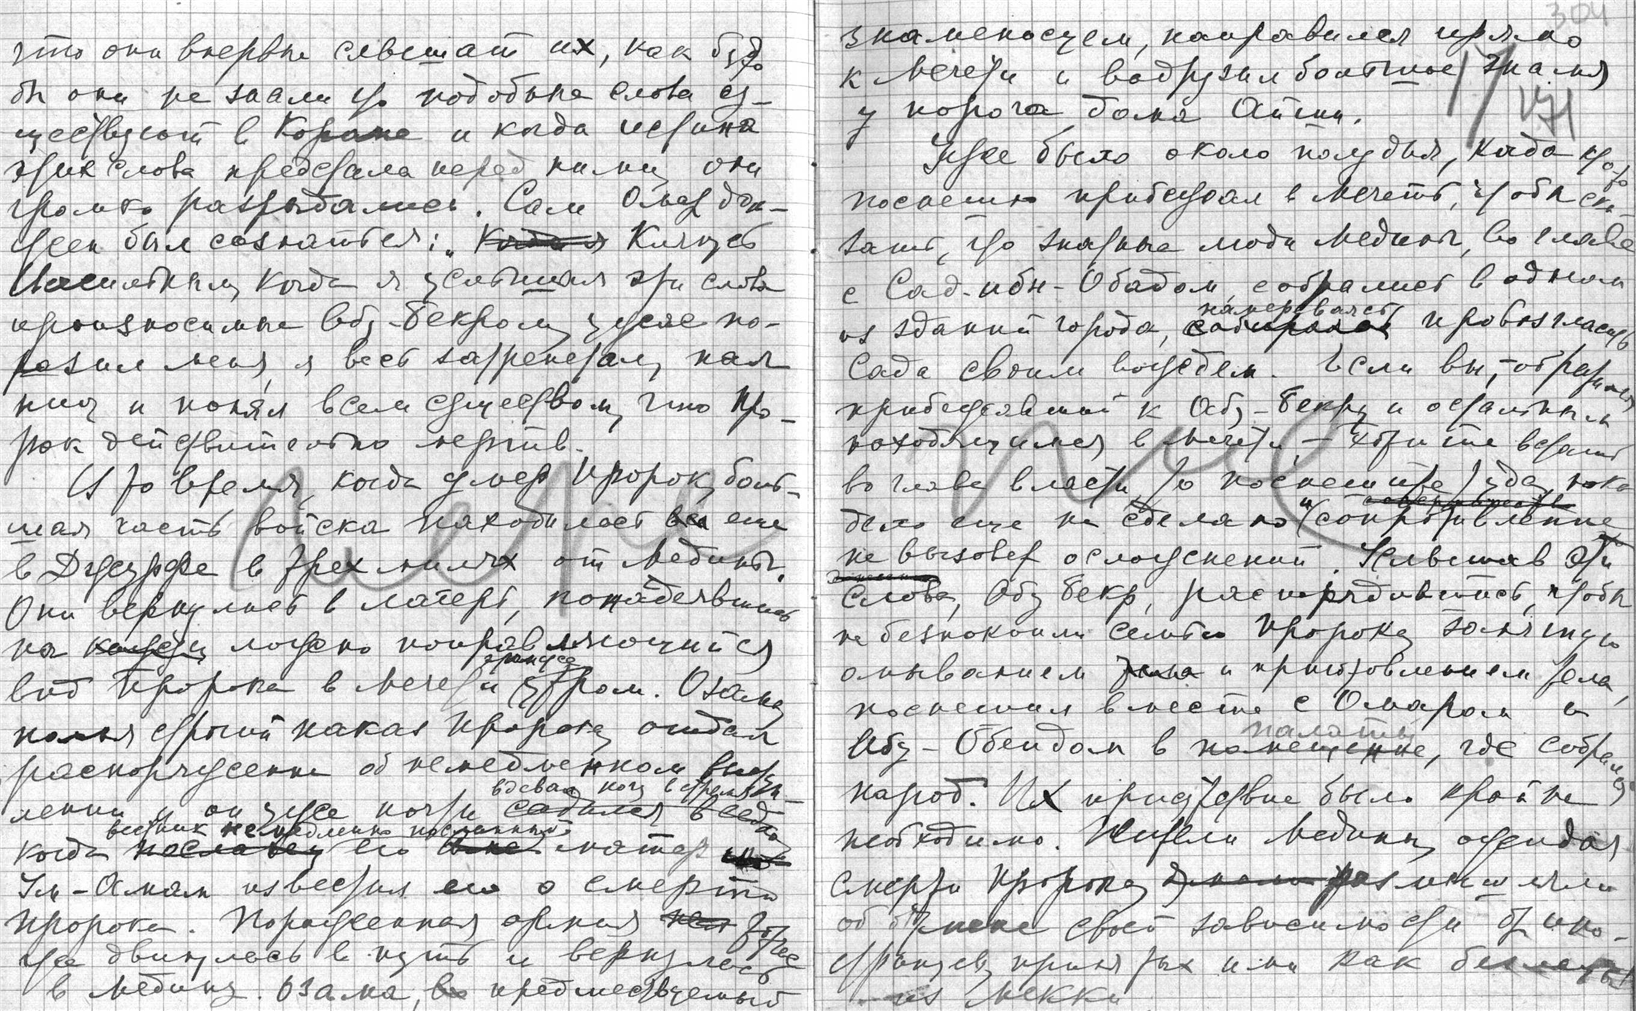 что они впервые слышат их, как будто
бы они не знали что подобные слова су-
ществуют в Коране и когда истина
этих слова предстала перед ними они
громко разрыдались. Сам Омар дол-
жен был сознаться: „Клянусь
Всесильным, когда я услышал эти слова
произносимые Абу-Бекром, ужас по-
разил меня, я весь затрепетал, пал
ниц и понял всем существом, что про-
рок действительно мертв.
В то время, когда умер Пророк, боль-
шая часть войска находилась еще
в Джурфе в трех милях от Медины.
Они вернулись в лагерь, понадеявшись
на можно поправляющийся
вид Пророка в мечети утром. Озама,
помня строгий наказ Пророка отдал
распоряжение об немедленном выступ-
лении и он уже почти вдевал ногу в стремя
когда вестник немедленно посланный его матерью
Ум-Аман известил его о смерти
Пророка. Пораженная армия тотчас
же двинулась в путь и вернулась
в Медину. Озама, предшествуемый
304
знаменосцем, направился прямо
к мечети и водрузил большое знамя
у порога дома Айши.
17 VII
Уже было около полудня, когда кто-то
поспешно прибежал в мечеть, чтобы ска-
зать, что знатные люди Медины, во главе
с Сад-ибн-Обадом собрались в одном
из зданий города, намереваясь провозгласить
Сада своим вождем. Если вы, - обратился
прибежавший к Абу-Бекру и остальным
находящимся в мечети, — хотите встать
во главе власти, то поспешите туда, пока
дело еще не сделано и сопротивление
не вызовет осложнений. Услышав эти
слова, Абу Бекр, распорядившись, чтобы
не беспокоили семью Пророка, занятую
омыванием и приготовлением тела,
поспешил вместе с Омаром и
Абу-Обейдом в палаты помещение, где собрался
народ. Их присутствие было крайне
необходимо. Жители Медины, ожидая
смерти Пророка, размышляли
об бремене своей зависимости от ино-
странцев, принятых ими как беглецы
из Мекки